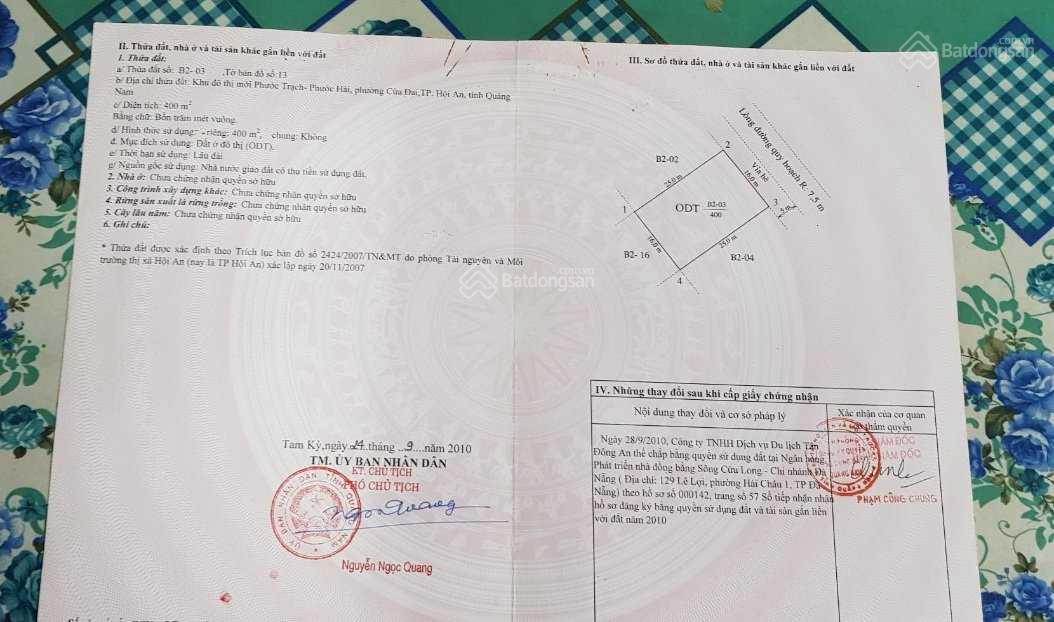 II. Thửa đất, nhà ở và tài sản khác gắn liền với đất
1. Thửa đất:
a/ Thửa đất số: B2- 03 ,Tờ bản đồ số:13
b/ Địa chỉ thửa đất: Khu đô thị mới Phước Trạch- Phước Hải, phường Cửa Đại,TP. Hội An, tỉnh Quảng
Nam
c/ Diện tích: 400 m²
Bằng chữ: Bốn trăm mét vuông.
d/ Hình thức sử dụng: - riêng: 400 m², chung: Không
đ. Mục đích sử dụng: Đất ở đô thị (ODT).
e/ Thời hạn sử dụng: Lâu dài
g/ Nguồn gốc sử dụng: Nhà nước giao đất có thu tiền sử dụng đất.
2. Nhà ở: Chưa chứng nhận quyền sở hữu
3. Công trình xây dựng khác: Chưa chứng nhận quyền sở hữu
4. Rừng sản xuất là rừng trồng: Chưa chứng nhận quyền sở hữu
5. Cây lâu năm: Chưa chứng nhận quyền sở hữu
6. Ghi chú:
* Thửa đất được xác định theo Trích lục bản đồ số 2424/2007/TN&MT do phòng Tài nguyên và Môi
trường thị xã Hội An (nay là TP Hội An) xác lập ngày 20/11/2007
Tam Kỳ,ngày 24 tháng 9 năm 2010
TM. ỦY BAN NHÂN DÂN
KT. CHỦ TỊCH
PHÓ CHỦ TỊCH
Nguyễn Ngọc Quang
III. Sơ đồ thửa đất, nhà ở và tài sản khác gắn liền với đất
Lòng đường quy hoạch R- 7,5 m
Vỉa hè
B2-02
2
25.0 m
16,0 m
3
1
ODT
B2-03
400
16,0 m
25.0 m
B2- 16
B2-04
4
IV. Những thay đổi sau khi cấp giấy chứng nhận
Nội dung thay đổi và cơ sở pháp lý
Xác nhận của cơ quan
có thẩm quyền
Ngày 28/9/2010, Công ty TNHH Dịch vụ Du lịch Tân
Đông An thế chấp bằng quyền sử dụng đất tại Ngân hàng
Phát triển nhà đồng bằng Sông Cửu Long - Chi nhánh Đà
Nẵng ( Địa chỉ: 129 Lê Lợi, phường Hải Châu 1, TP Đà
Nẵng) theo hồ sơ số 000142, trang số 57 Sổ tiếp nhận nhận
hồ sơ đăng ký bằng quyền sử dụng đất và tài sản gắn liền
với đất năm 2010
GIÁM ĐỐC
PHẠM CÔNG CHUNG
Batdongsan
.com.vn
Batdongsan
.com.vn